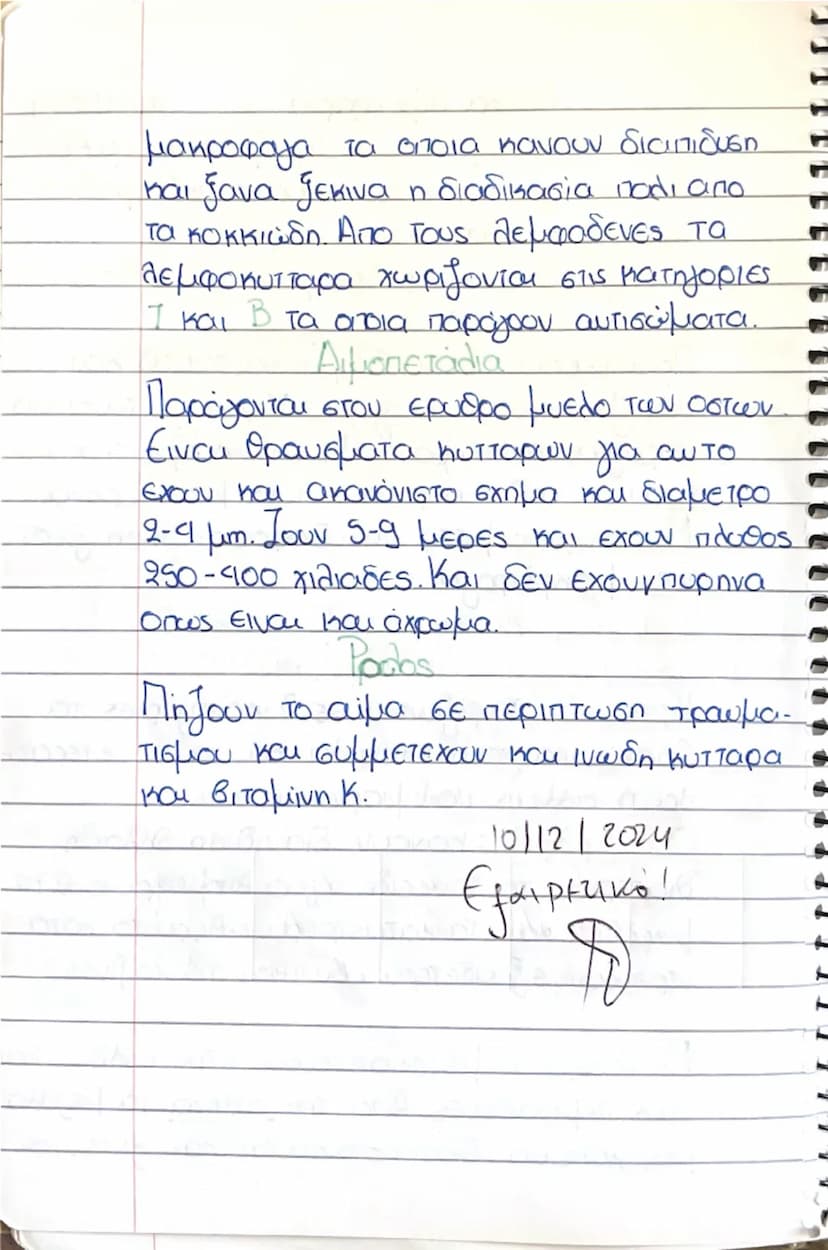 μακροφαγα τα οποια κανουν διαπιδυση
και ξανα ξεκινα η διαδικασία παλι απο
τα κοκκιώδη. Απο τους λεμφαδενες τα
λεμφοκυτταρα χωριζονται στις κατηγοριες
Τ και Β τα οποια παράγουν αντισώματα.
Αιμοπετάλια
Παράγονται στον ερυθρο μυελο των οστων.
Ειναι θραυσματα κυτταρων για αυτο
εχουν και ακανόνιστο σχημα και διαμετρο
2-4 μm. Ζουν 5-9 μερες και εχουν πληθος
250-400 χιλιαδες. Και δεν εχουν πυρηνα
οπως ειναι και άχρωμα.
Ρολος
Πήζουν το αίμα σε περιπτωση τραυμα-
τισμου και συμμετεχουν και ινωδη κυτταρα
και βιταμίνη Κ.
10/12/2024
Εξαιρετικό!